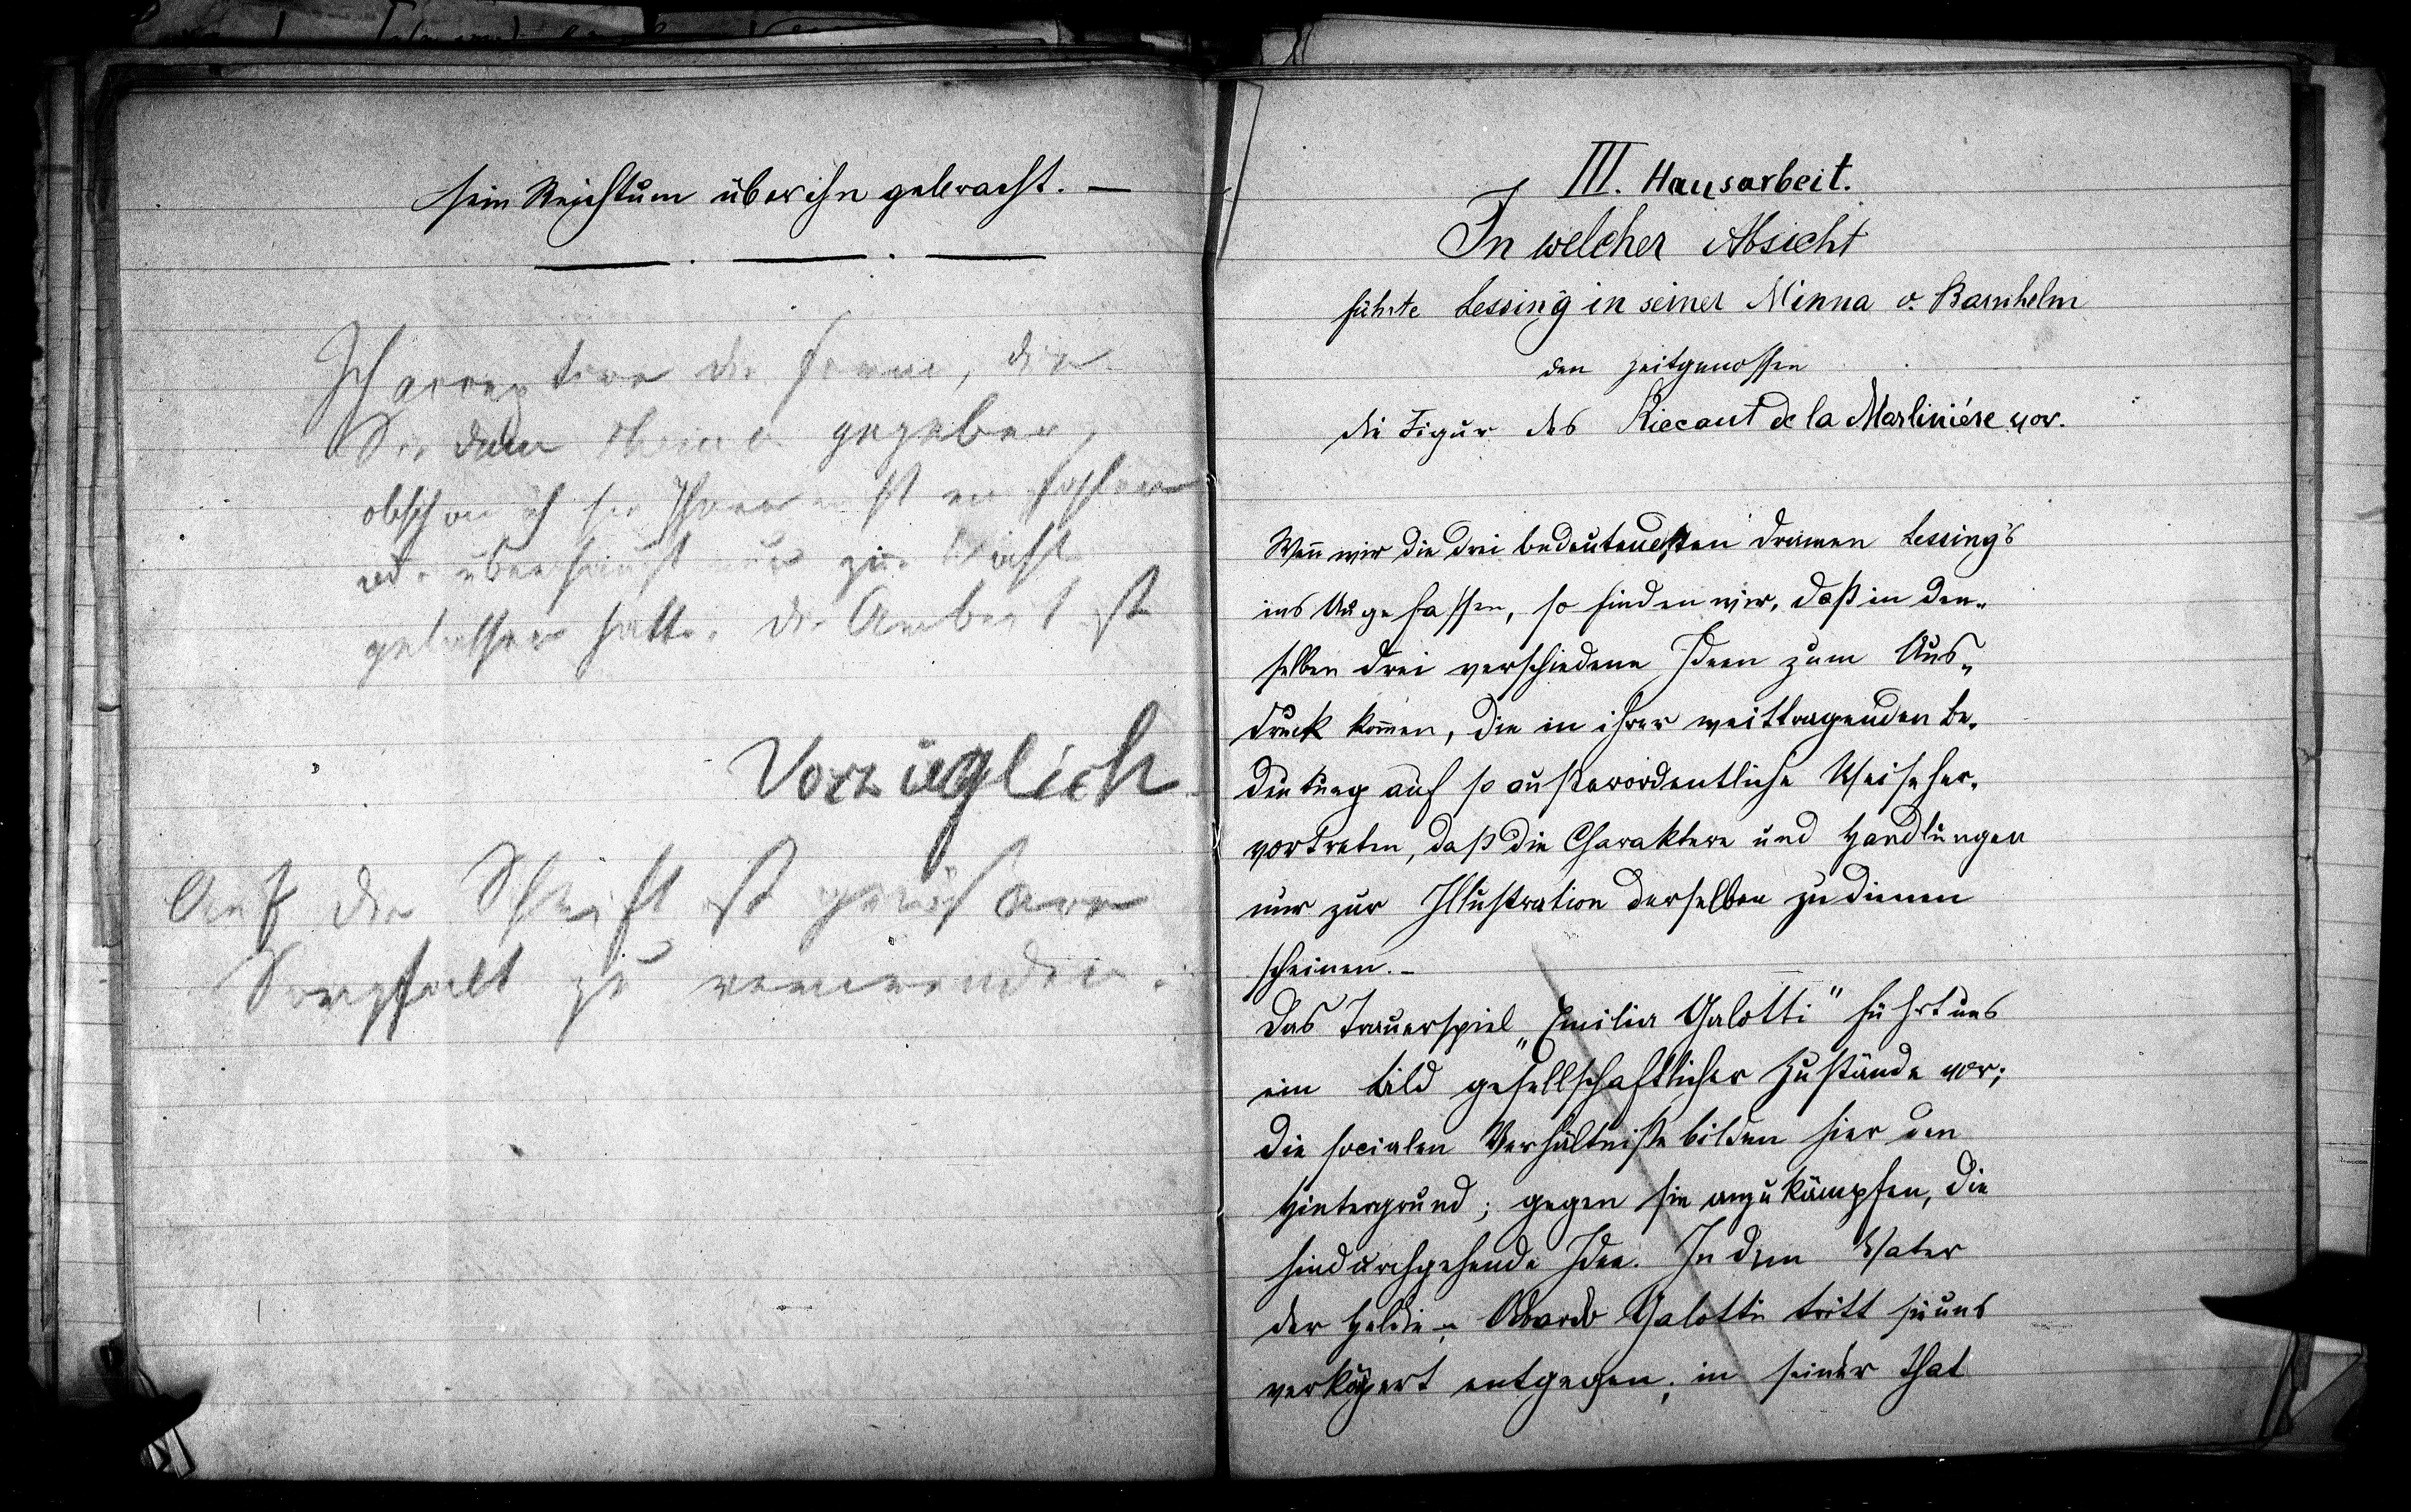 sein Reichtum über ihn gebracht. —
Ich acceptire die Form, die
Sie dem Thema gegeben,
obschon ich sie Ihnen nicht
oder überhaupt nur zur Wahl
gelassen hatte. Die Arbeit ist
Vorzüglich
Auf die Schrift ist
Sorgfalt zu verwenden.
III. Hausarbeit.
In welcher Absicht
führte Lessing in seiner Minna v. Barnhelm
den Zeitgenossen
die Figur des Riccaut de la Marliniére vor.
Wen̄ wir die drei bedeutendsten Dramen Lessing's
ins Auge fassen, so finden wir, daß in den-
selben drei verschiedene Ideen zum Aus-
druck kom̄en, die in ihrer weittragenden Be-
deutung auf so außerordentliche Weise her-
vortreten, daß die Charaktere und Handlungen
nur zur Illustration derselben zu dienen
scheinen. —
Das Trauerspiel „Emilia Galotti" führt uns
ein Bild gesellschaftlicher Zustände vor;
die socialen Verhältniße bilden hier den
Hintergrund; gegen sie anzukämpfen, die
hindurchgehende Idee. In dem Vater
der Heldin, Odoardo Galotti tritt sie uns
verkörpert entgegen; in seiner That